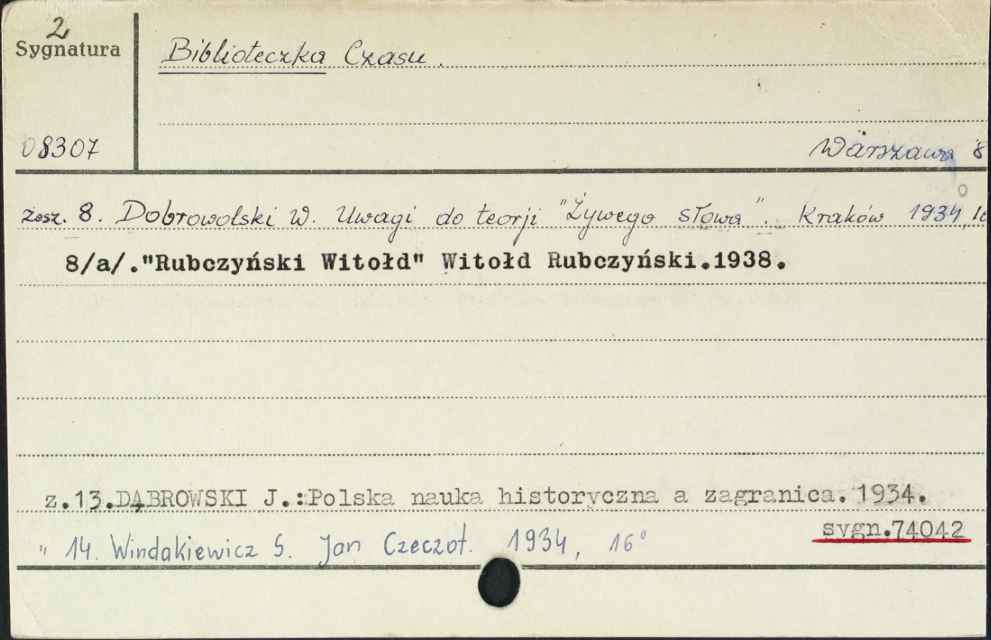 2
Sygnatura
Biblioteczka Czasu.
08307
Warszawa 8°
Zesz. 8. Dobrowolski W. Uwagi do teorji "Żywego słowa". Kraków 1934, 16
8/a/."Rubczyński Witołd" Witołd Rubczyński.1938.
z.13.DĄBROWSKI J.:Polska nauka historyczna a zagranica. 1934.
sygn.74042
" 14. Windakiewicz S. Jan Czeczot. 1934, 16°